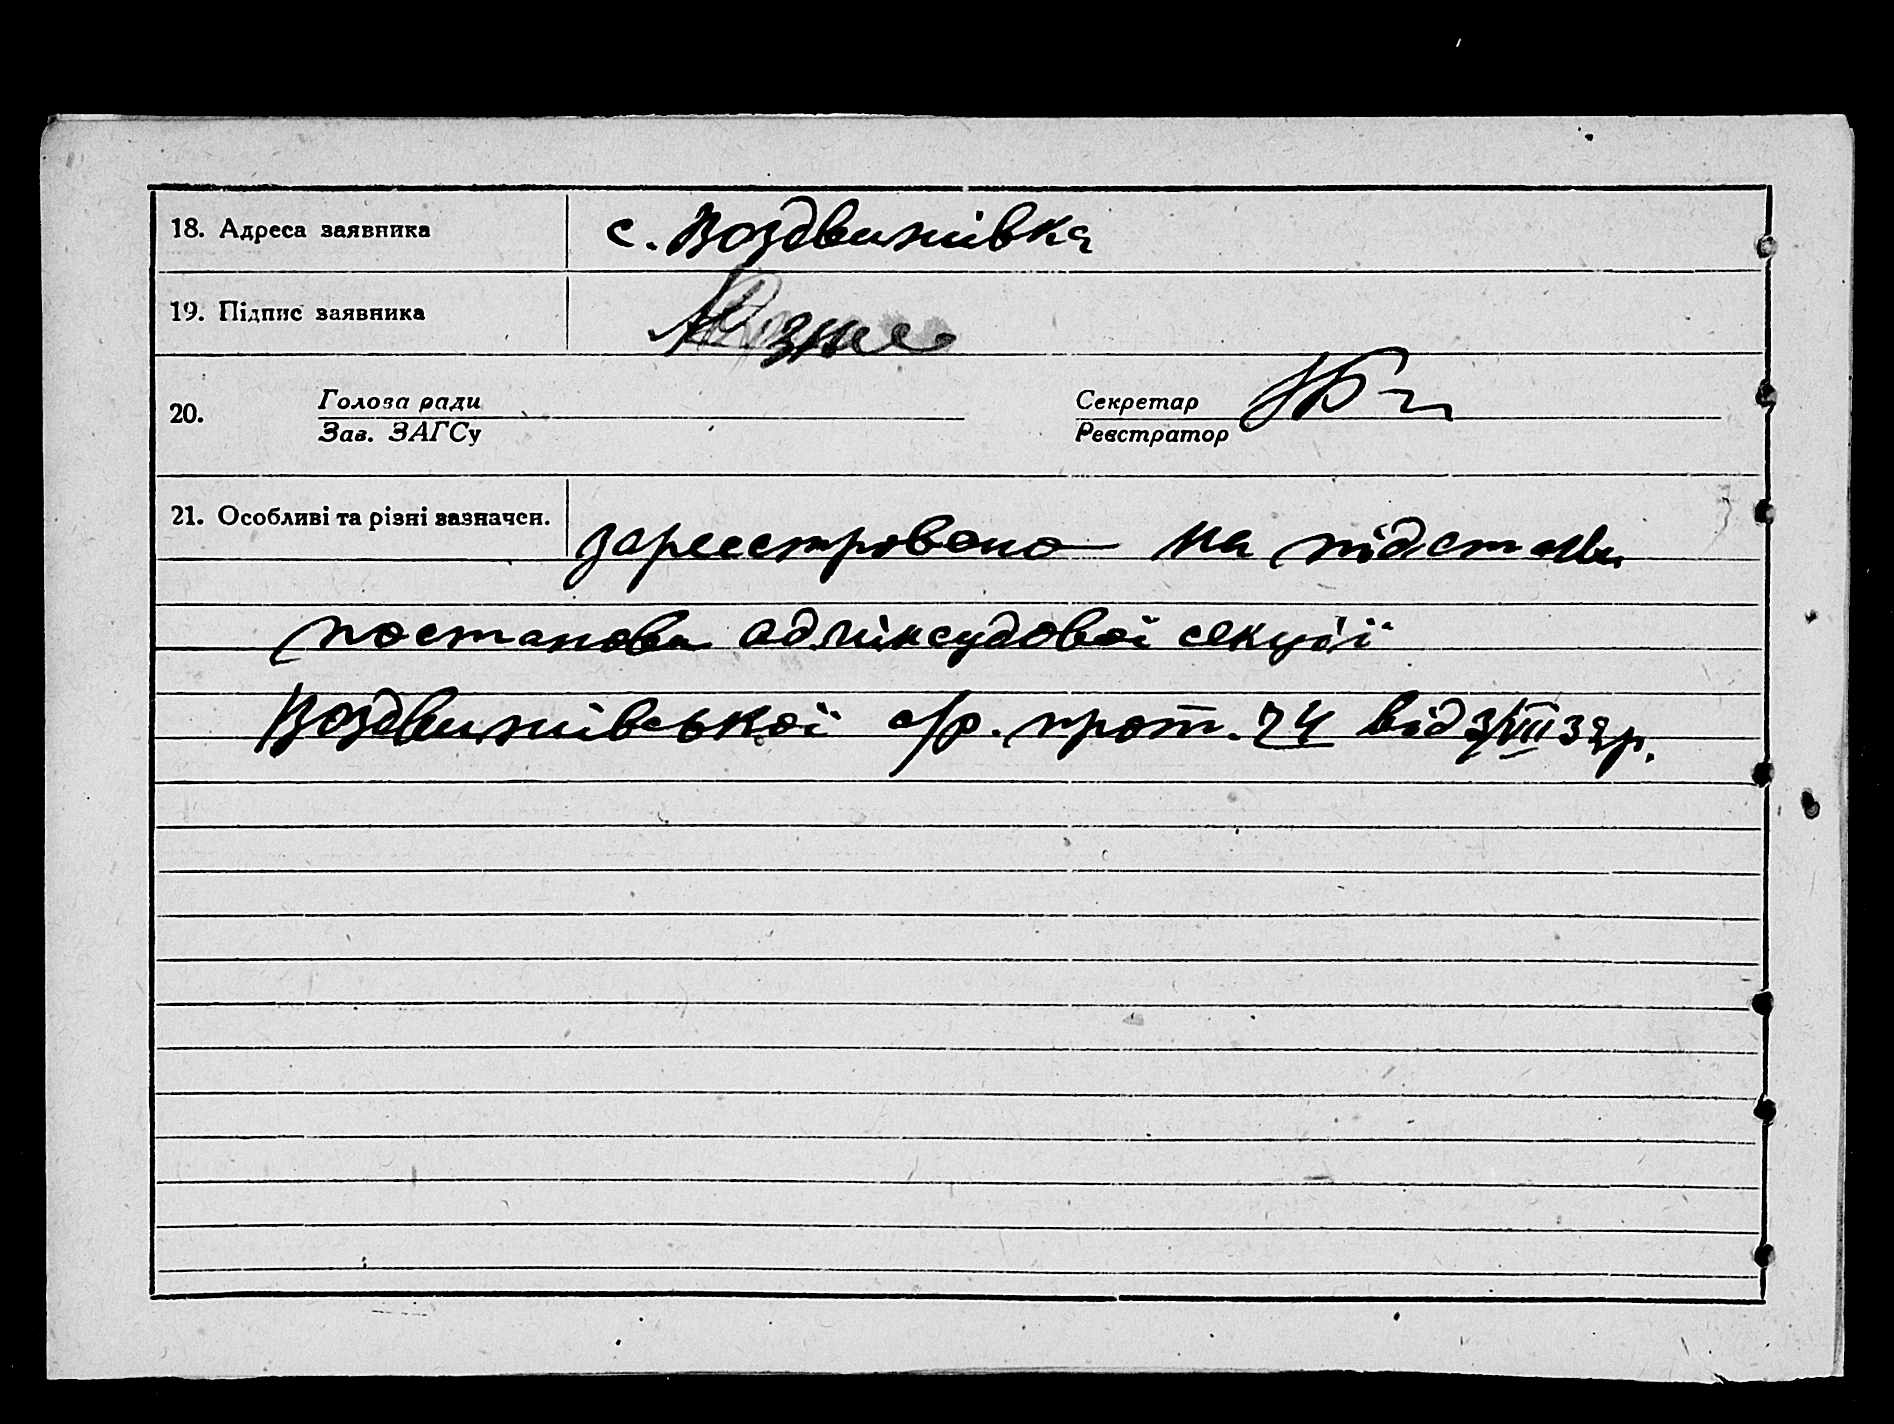 18. Адреса заявника с. Воздвижівка
19. Підпис заявника
20. Голова ради Секретар
Зав. ЗАГСу Реєстратор
21. Особливі та різні зазначен.
зареєстровано на підстави
постанови адмінсудової секції
Воздвижівської с/р. прот. 24 від 3/VIII 32р.